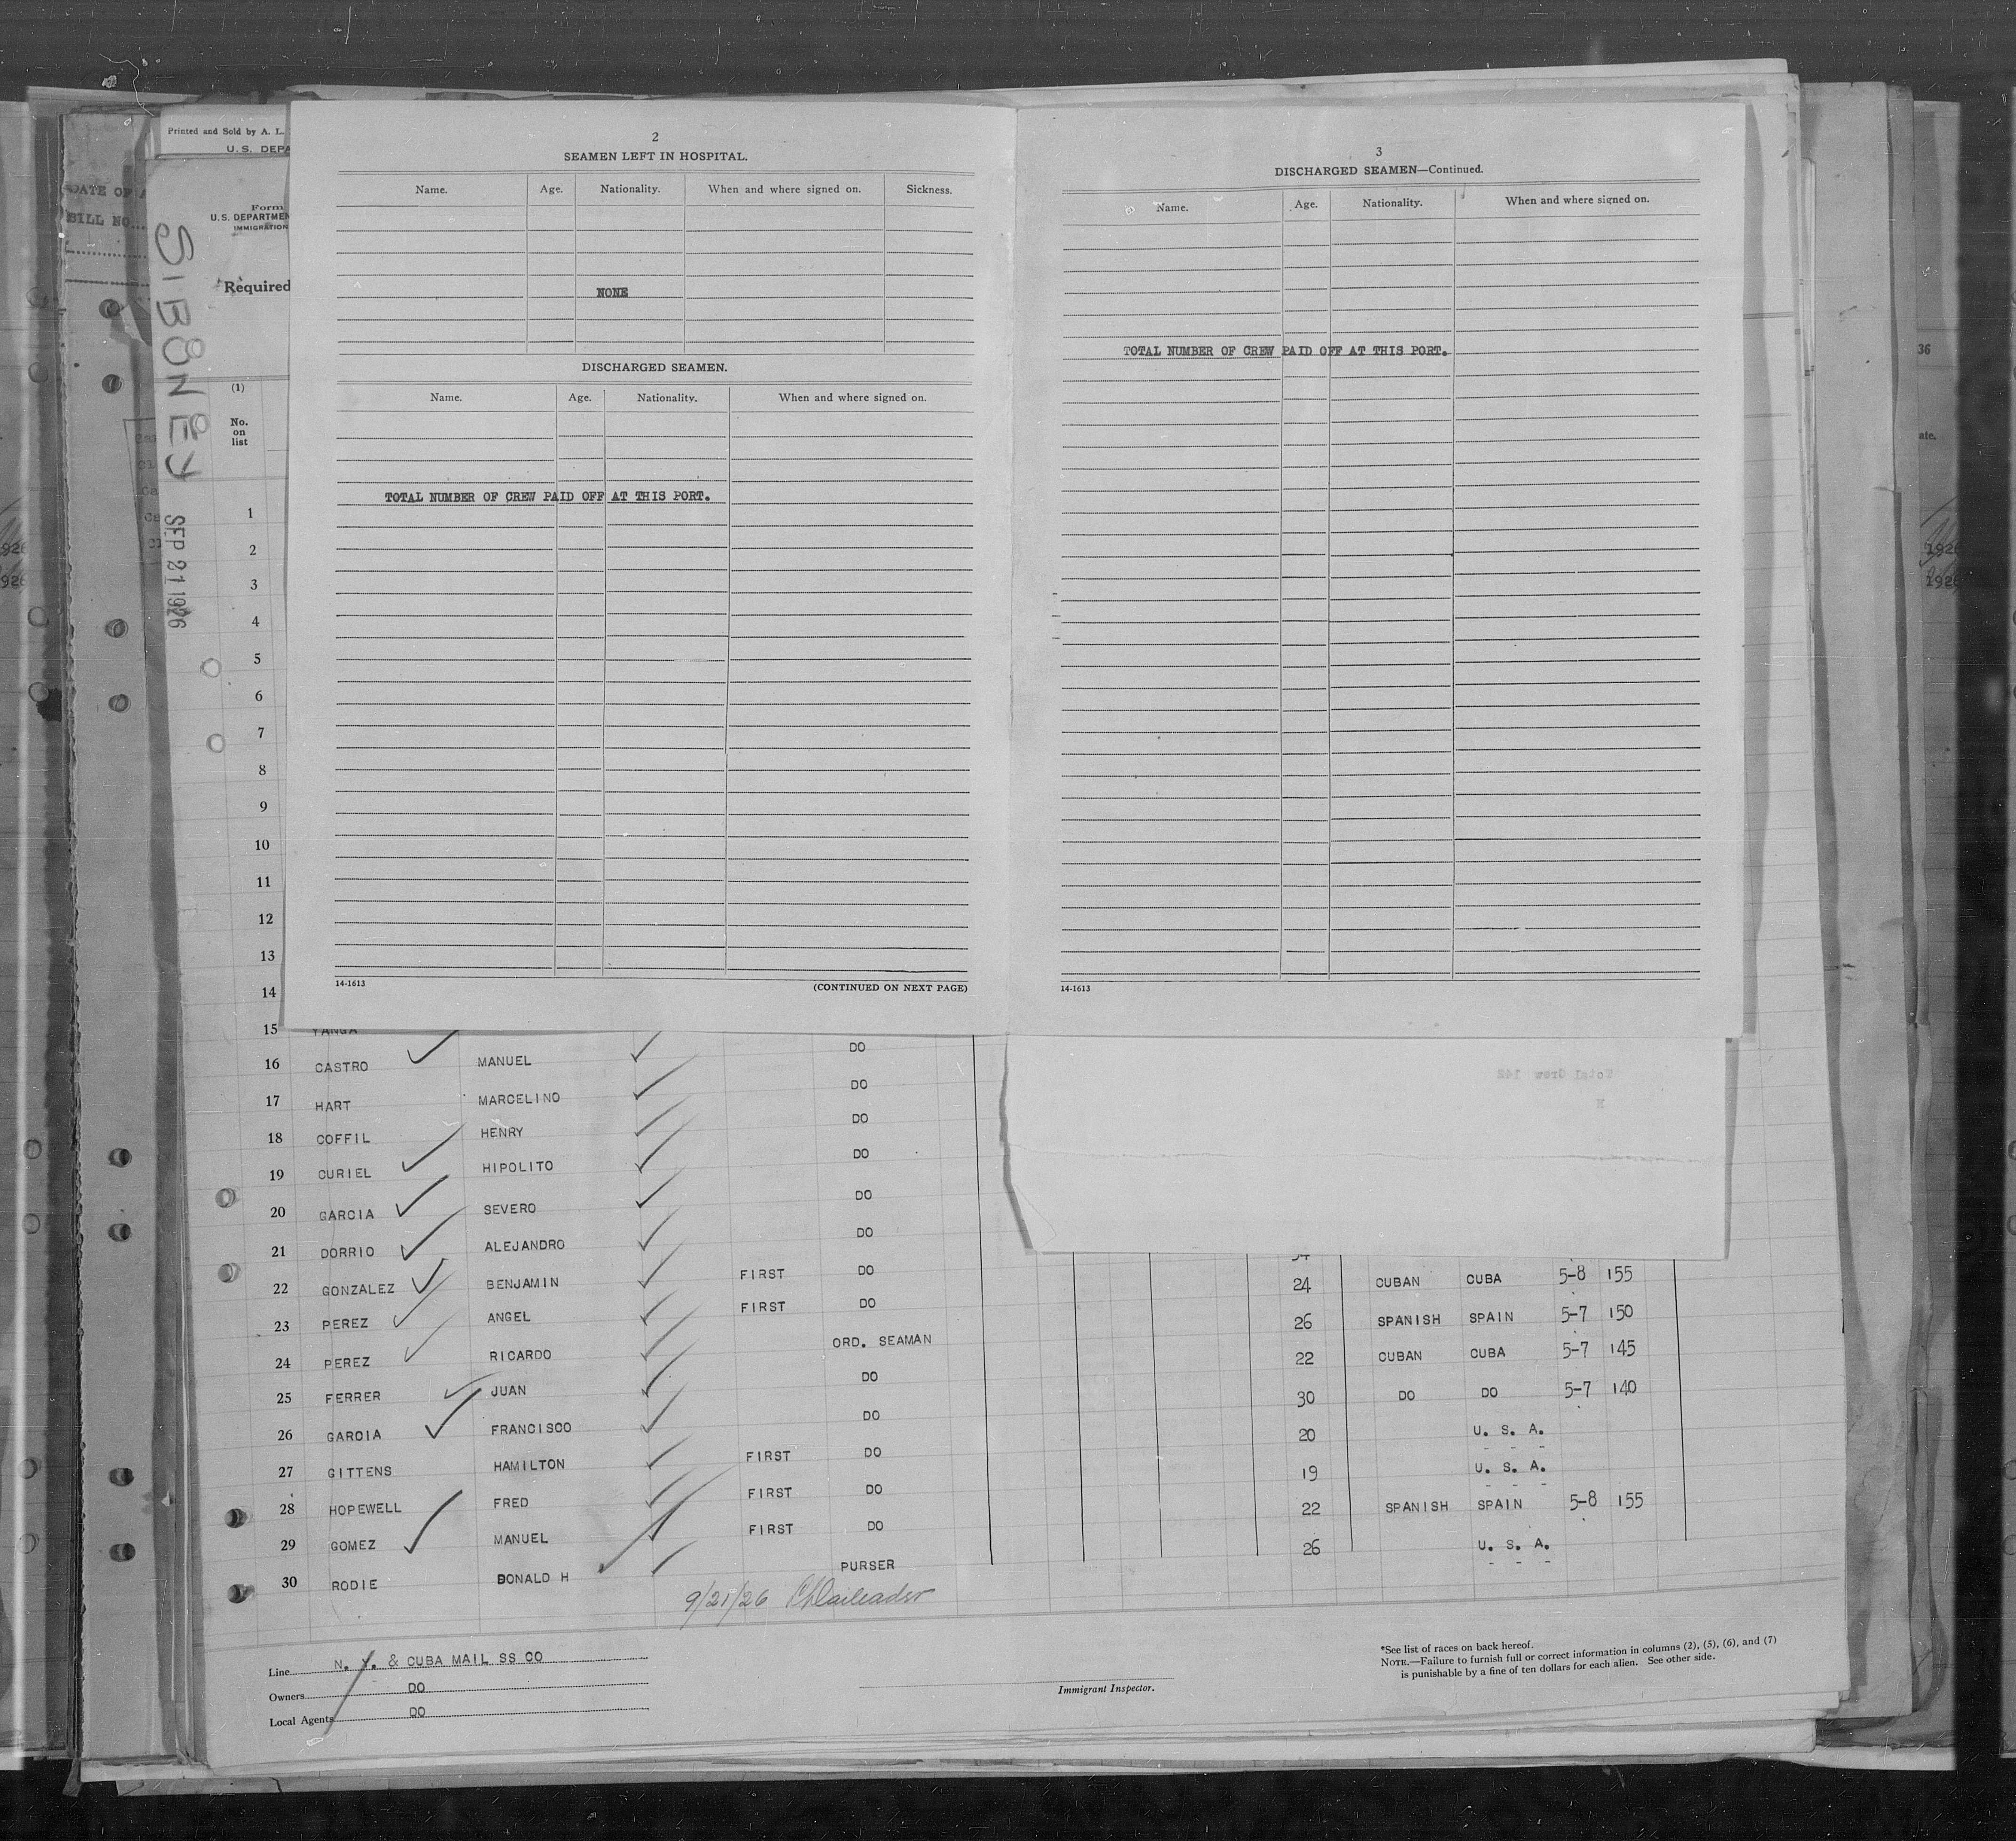 Printed and Sold by A. L.
U. S. DEPA
DATE OF A
BILL NO.
Form
U. S. DEPARTMEN
IMMIGRATION
Required
SIBONEY
SEP 21 1926
(1)
No.
on
list
1
2
3
4
5
6
7
8
9
10
11
12
13
14
2
SEAMEN LEFT IN HOSPITAL.
Name. Age. Nationality. When and where signed on. Sickness.
NONE
DISCHARGED SEAMEN.
Name. Age. Nationality. When and where signed on.
TOTAL NUMBER OF CREW PAID OFF AT THIS PORT.
14-1613 (CONTINUED ON NEXT PAGE)
3
DISCHARGED SEAMEN—Continued.
Name. Age. Nationality. When and where signed on.
TOTAL NUMBER OF CREW PAID OFF AT THIS PORT.
14-1613
36
ate.
1926
1926
Total Crew 142
15 YANGA
16 CASTRO MANUEL DO
17 HART MARCELINO DO
18 COFFIL HENRY DO
19 CURIEL HIPOLITO DO
20 GARCIA SEVERO DO
21 DORRIO ALEJANDRO DO
22 GONZALEZ BENJAMIN FIRST DO 24 CUBAN CUBA 5-8 155
23 PEREZ ANGEL FIRST DO 26 SPANISH SPAIN 5-7 150
24 PEREZ RICARDO ORD. SEAMAN 22 CUBAN CUBA 5-7 145
25 FERRER JUAN DO 30 DO DO 5-7 140
26 GARCIA FRANCISCO DO 20 U. S. A.
27 GITTENS HAMILTON FIRST DO 19 U. S. A.
28 HOPEWELL FRED FIRST DO 22 SPANISH SPAIN 5-8 155
29 GOMEZ MANUEL FIRST DO 26 U. S. A.
30 RODIE DONALD H PURSER
9/21/26
Line N. Y. & CUBA MAIL SS CO
Owners DO
Local Agents DO
Immigrant Inspector.
*See list of races on back hereof.
NOTE.—Failure to furnish full or correct information in columns (2), (5), (6), and (7)
is punishable by a fine of ten dollars for each alien. See other side.